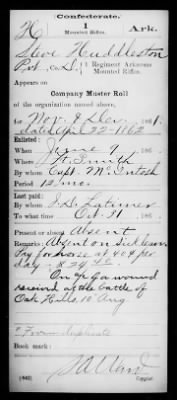 Confederate.
H 1 Ark.
Mounted Rifles.
Steve Huddleston
Pvt, Co. D, 2 Regiment Arkansas
Mounted Rifles.
Appears on
Company Muster Roll
of the organization named above,
for Nov. & Dec, 1861.
dated Apl 22-1862
Enlisted:
When June 9, 186
Where Ft. Smith
By whom Capt. McIntosh
Period 12 mo.
Last paid:
By whom J. D. Latimer
To what time Oct. 31, 186
Present or absent Absent
Remarks: Absent on Sick leave
Pay for horse at 40¢ per
day
On a/c of a wound
received in the battle of
Oak Hills 10" Aug
Book mark:
(642) Copyist.